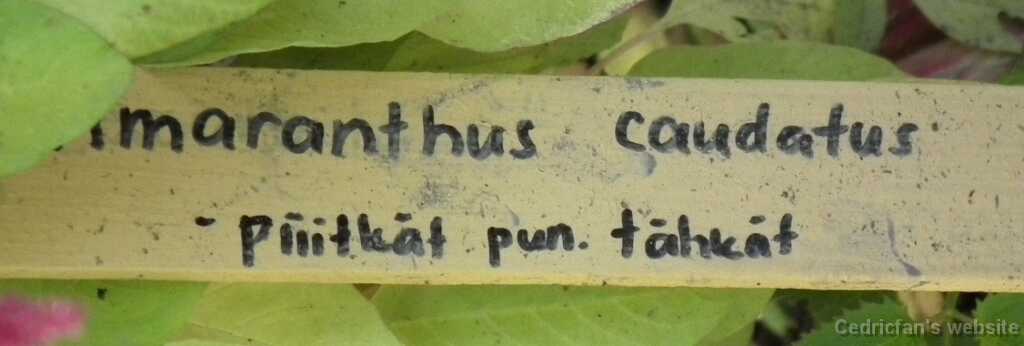 Amaranthus caudatus
- piiitkät pun. tähkät
Cedricfan's website